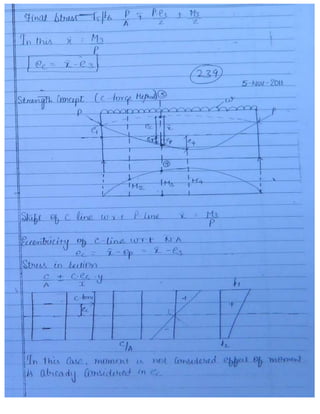 Final stress fc/fb P/A ∓ P.e3/Z ± M3/Z
In this x̄ = M3/P
ec = x̄ - e3
(239)
5-Nov-2011
Strength Concept (C-force Method)
w
P
P
e1
M2
M3
M4
Shift of C line w.r.t P line x̄ = M3/P
Eccentricity of C-line w.r.t N.A
ec = x̄ - ep = x̄ - e3
Stress in section
C/A ± C.ec/I . y
f1
C-force
ec
+
+
C/A
f2
In this case, moment is not considered effect of moment
is already considered in ec